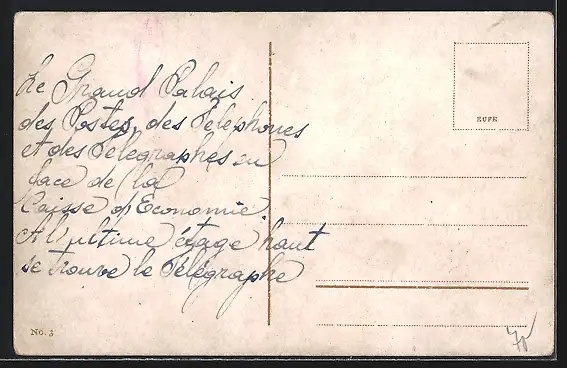 Le Grand Palais
des Postes, des Téléphones
et des Télégraphes en
face de la
Caisse d'Economie.
A l'ultime étage haut
se trouve le Télégraphe
EUFR
No. 3